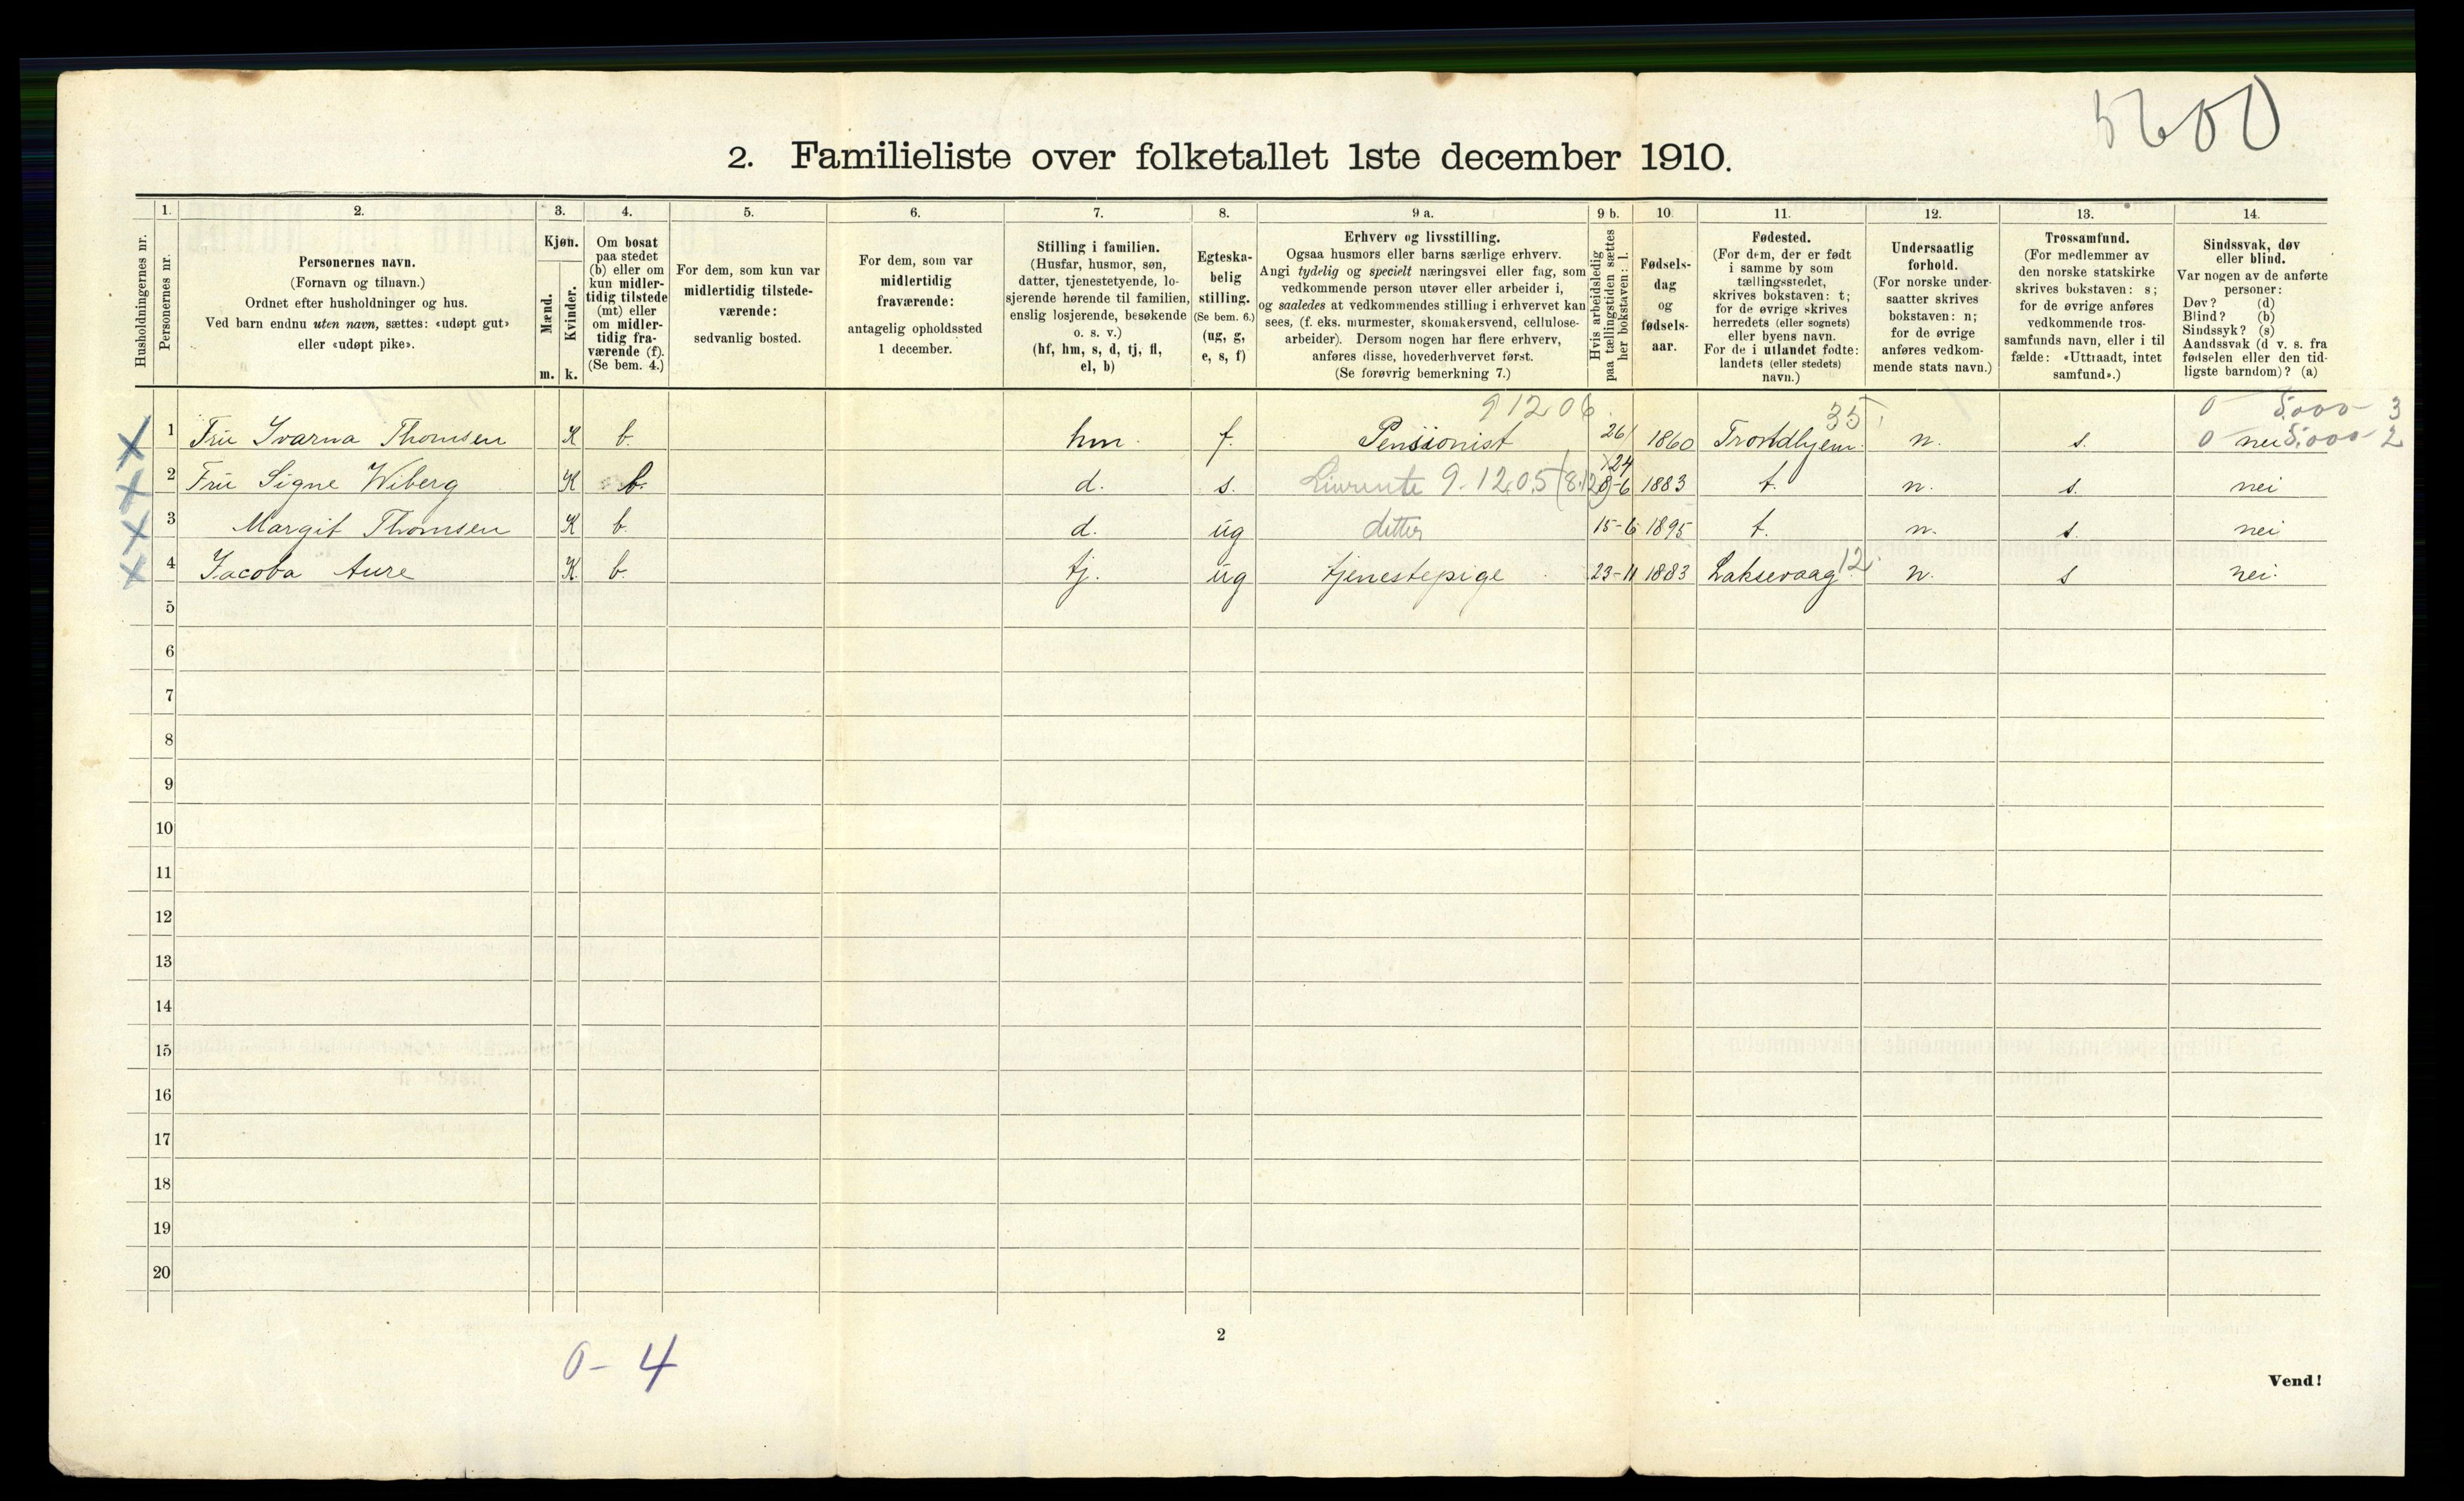 5600
2. Familieliste over folketallet 1ste december 1910.
Husholdningernes nr.
1. Personernes nr.
2. Personernes navn.
(Fornavn og tilnavn.)
Ordnet efter husholdninger og hus.
Ved barn endnu uten navn, sættes: «udøpt gut»
eller «udøpt pike».
3. Kjøn.
Mænd. m.
Kvinder. k.
4. Om bosat
paa stedet
(b) eller om
kun midler-
tidig tilstede
(mt) eller
om midler-
tidig fra-
værende (f).
(Se bem. 4.)
5. For dem, som kun var
midlertidig tilstede-
værende:
sedvanlig bosted.
6. For dem, som var
midlertidig
fraværende:
antagelig opholdssted
1 december.
7. Stilling i familien.
(Husfar, husmor, søn,
datter, tjenestetyende, lo-
sjerende hørende til familien,
enslig losjerende, besøkende
o. s. v.)
(hf, hm, s, d, tj, fl,
el, b)
8. Egteska-
belig
stilling.
(Se bem. 6.)
(ug, g,
e, s, f)
9 a. Erhverv og livsstilling.
Ogsaa husmors eller barns særlige erhverv.
Angi tydelig og specielt næringsvei eller fag, som
vedkommende person utøver eller arbeider i,
og saaledes at vedkommendes stilling i erhvervet kan
sees, (f. eks. murmester, skomakersvend, cellulose-
arbeider). Dersom nogen har flere erhverv,
anføres disse, hovederhvervet først.
(Se forøvrig bemerkning 7.)
9 b. Hvis arbeidsledig
paa tællingstiden sættes
her bokstaven: l.
10. Fødsels-
dag
og
fødsels-
aar.
11. Fødested.
(For dem, der er født
i samme by som
tællingsstedet,
skrives bokstaven: t;
for de øvrige skrives
herredets (eller sognets)
eller byens navn.
For de i utlandet fødte:
landets (eller stedets)
navn.)
12. Undersaatlig
forhold.
(For norske under-
saatter skrives
bokstaven: n;
for de øvrige
anføres vedkom-
mende stats navn.)
13. Trossamfund.
(For medlemmer av
den norske statskirke
skrives bokstaven: s;
for de øvrige anføres
vedkommende tros-
samfunds navn, eller i til
fælde: «Uttraadt, intet
samfund».)
14. Sindssvak, døv
eller blind.
Var nogen av de anførte
personer:
Døv? (d)
Blind? (b)
Sindssyk? (s)
Aandssvak (d v. s. fra
fødselen eller den tid-
ligste barndom)? (a)
9 12 06 35 0 5.000 - 3
X 1 Fru Svarna Thomsen K b. hm. f. Pensionist 26/ 1860 Trondhjem. n. s. 0 nei 5.000 - 2
X 2 Fru Signe Wiberg K b. d. s. Livrente 9.12.05 8-6 1883 t. n. s. nei
X 3 Margit Thomsen K b. d. ug ditto 15-6 1895 t. n. s. nei
X 4 Jacoba Aure K. b. tj. ug tjenestepige 23-11 1883 Laksevaag 12. n. s nei.
5
6
7
8
9
10
11
12
13
14
15
16
17
18
19
20
2
0 - 4
Vend!